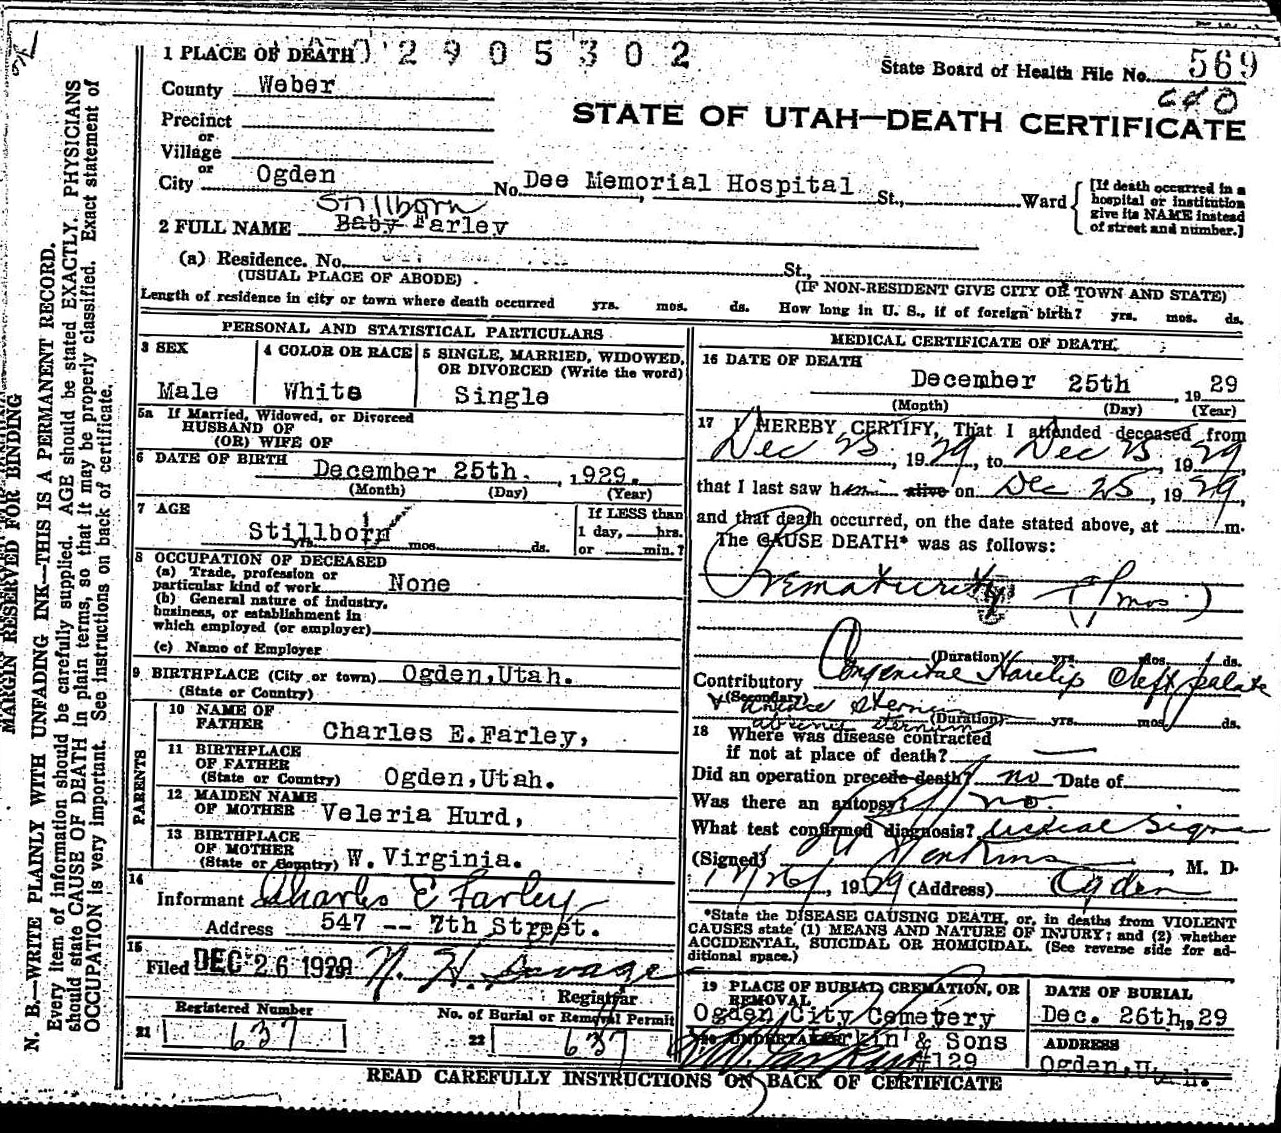 1 PLACE OF DEATH 2905302
State Board of Health File No. 569
County Weber
STATE OF UTAH—DEATH CERTIFICATE
Precinct
or
Village
or
City Ogden No. Dee Memorial Hospital St., Ward
[If death occurred in a
hospital or institution
give its NAME instead
of street and number.]
Stillborn
2 FULL NAME Baby Farley
(a) Residence. No. St.,
(USUAL PLACE OF ABODE) (IF NON-RESIDENT GIVE CITY OR TOWN AND STATE)
Length of residence in city or town where death occurred yrs. mos. ds. How long in U. S., if of foreign birth? yrs. mos. ds.
PERSONAL AND STATISTICAL PARTICULARS
3 SEX
Male
4 COLOR OR RACE
White
5 SINGLE, MARRIED, WIDOWED,
OR DIVORCED (Write the word)
Single
5a If Married, Widowed, or Divorced
HUSBAND OF
(OR) WIFE OF
6 DATE OF BIRTH December 25th. , 1929.
(Month) (Day) (Year)
7 AGE
Stillborn
yrs. mos. ds.
If LESS than
1 day, hrs.
or min.?
8 OCCUPATION OF DECEASED
(a) Trade, profession or
particular kind of work None
(b) General nature of industry,
business, or establishment in
which employed (or employer)
(c) Name of Employer
9 BIRTHPLACE (City or town) Ogden,Utah.
(State or Country)
PARENTS
10 NAME OF
FATHER Charles E.Farley,
11 BIRTHPLACE
OF FATHER
(State or Country) Ogden,Utah.
12 MAIDEN NAME
OF MOTHER Veleria Hurd,
13 BIRTHPLACE
OF MOTHER
(State or Country) W. Virginia.
14
Informant Charles E Farley
Address 547 -- 7th Street.
15
Filed DEC 26 1929 N. H. Savage
Registrar
Registered Number
21 637
No. of Burial or Removal Permit
22 637
MEDICAL CERTIFICATE OF DEATH
16 DATE OF DEATH
December 25th , 19 29
(Month) (Day) (Year)
17 I HEREBY CERTIFY, That I attended deceased from
Dec 25, 1929, to Dec 25, 1929,
that I last saw him alive on Dec 25, 1929,
and that death occurred, on the date stated above, at m.
The CAUSE DEATH* was as follows:
Prematurity mos.)
(Duration) yrs. mos. ds.
Contributory Congenital Harelip Cleft palate
(Secondary)
absence sternum (Duration) yrs. mos. ds.
18 Where was disease contracted
if not at place of death?
Did an operation precede death? no Date of
Was there an autopsy? no
What test confirmed diagnosis?
(Signed) Jenkins , M. D.
12/26, 1929 (Address) Ogden
*State the DISEASE CAUSING DEATH, or, in deaths from VIOLENT
CAUSES state (1) MEANS AND NATURE OF INJURY; and (2) whether
ACCIDENTAL, SUICIDAL OR HOMICIDAL. (See reverse side for ad-
ditional space.)
19 PLACE OF BURIAL, CREMATION, OR
REMOVAL
Ogden City Cemetery
DATE OF BURIAL
Dec. 26th, 19 29
20 UNDERTAKER Larkin & Sons
#129
ADDRESS
Ogden,Utah.
READ CAREFULLY INSTRUCTIONS ON BACK OF CERTIFICATE
MARGIN RESERVED FOR BINDING
N. B.—WRITE PLAINLY WITH UNFADING INK—THIS IS A PERMANENT RECORD.
Every item of information should be carefully supplied. AGE should be stated EXACTLY. PHYSICIANS
should state CAUSE OF DEATH in plain terms, so that it may be properly classified. Exact statement of
OCCUPATION is very important. See instructions on back of certificate.